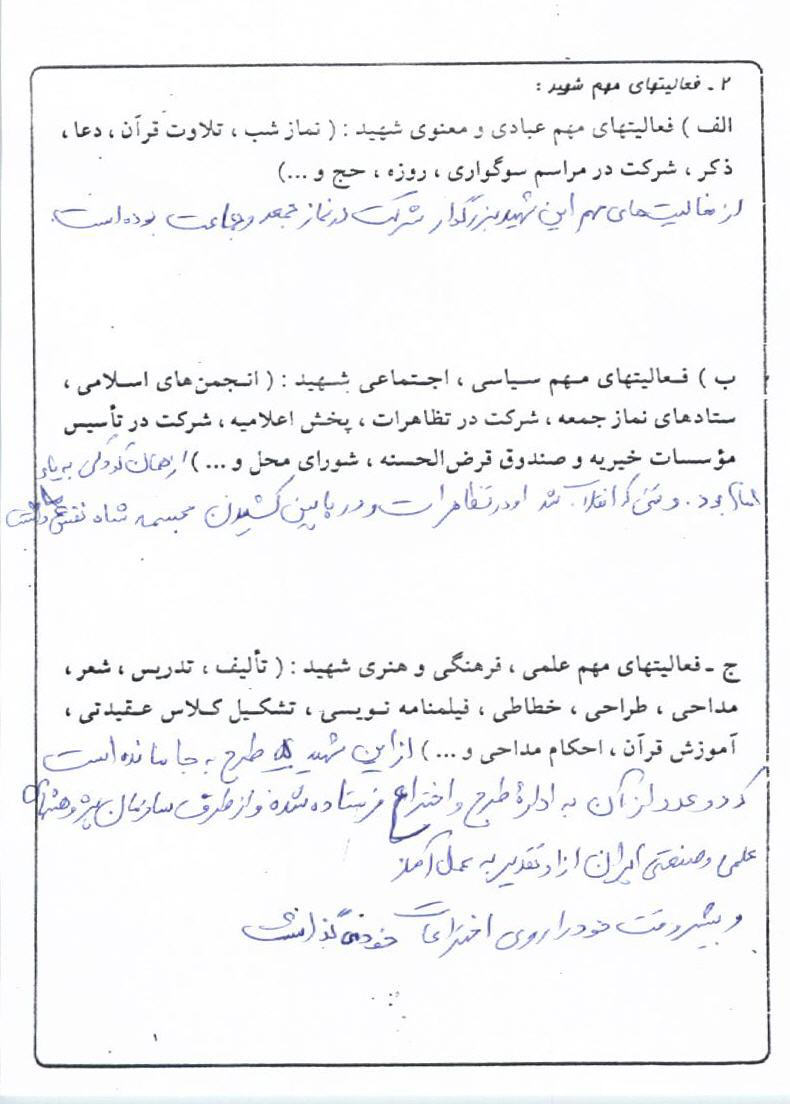 ۲ ـ فعالیتهای مهم شهید :
الف ) فعالیتهای مهم عبادی و معنوی شهید : ( نماز شب ، تلاوت قرآن ، دعا ،
ذکر ، شرکت در مراسم سوگواری ، روزه ، حج و ...)
از فعالیت‌های مهم این شهید بزرگوار شرکت در نماز جمعه و جماعت بوده است.
ب ) فعالیتهای مهم سیاسی ، اجتماعی شهید : ( انجمن‌های اسلامی ،
ستادهای نماز جمعه ، شرکت در تظاهرات ، پخش اعلامیه ، شرکت در تأسیس
مؤسسات خیریه و صندوق قرض‌الحسنه ، شورای محل و ... ) از همان کودکی به یاد
امام بود. وقتی که انقلاب شد او در تظاهرات و در پایین کشیدن مجسمه شاه نقش داشت
ج ـ فعالیتهای مهم علمی ، فرهنگی و هنری شهید : ( تألیف ، تدریس ، شعر ،
مداحی ، طراحی ، خطاطی ، فیلمنامه نویسی ، تشکیل کلاس عقیدتی ،
آموزش قرآن ، احکام مداحی و ... ) از این شهید ۵ طرح به جا مانده است
که دو عدد از آن به ادارهٔ طرح و اختراع فرستاده شده و از طرف سازمان پژوهشهای
علمی و صنعتی ایران از او تقدیر به عمل آمد
و بیشتر وقت خود را روی اختراعات خود می گذاشت